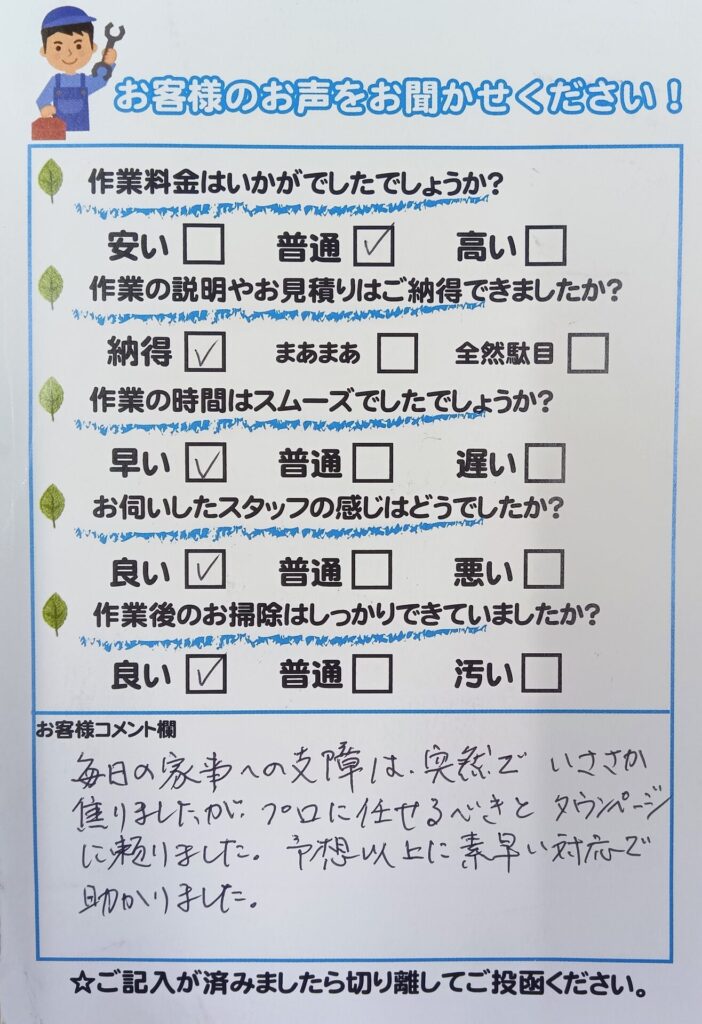 お客様のお声をお聞かせください！
作業料金はいかがでしたでしょうか？
安い □ 普通 ☑ 高い □
作業の説明やお見積りはご納得できましたか？
納得 ☑ まあまあ □ 全然駄目 □
作業の時間はスムーズでしたでしょうか？
早い ☑ 普通 □ 遅い □
お伺いしたスタッフの感じはどうでしたか？
良い ☑ 普通 □ 悪い □
作業後のお掃除はしっかりできていましたか？
良い ☑ 普通 □ 汚い □
お客様コメント欄
毎日の家事への支障は、突然で いささか
焦りましたが、プロに任せるべきと タウンページ
に頼りました。予想以上に素早い対応で
助かりました。
☆ご記入が済みましたら切り離してご投函ください。